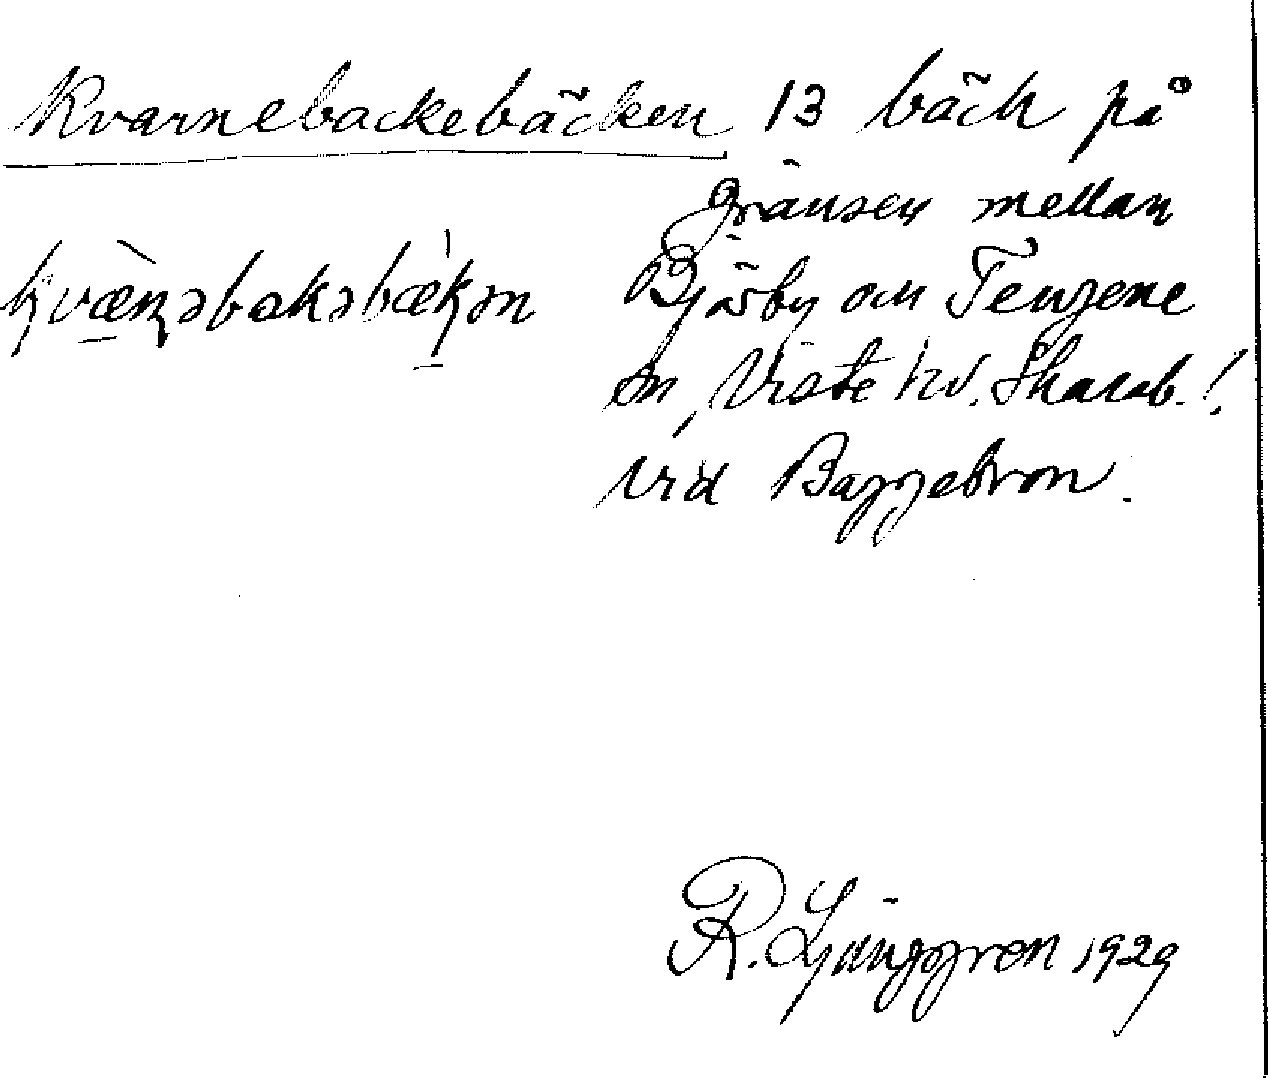 Kvarnebackebäcken 13 bäck på
gränsen mellan
kvæ̀ṇəbakəbækən Bjärby och Tengene
sn, Viste hd. Skarab.!
vid Baggebron.
R. Ljunggren 1929